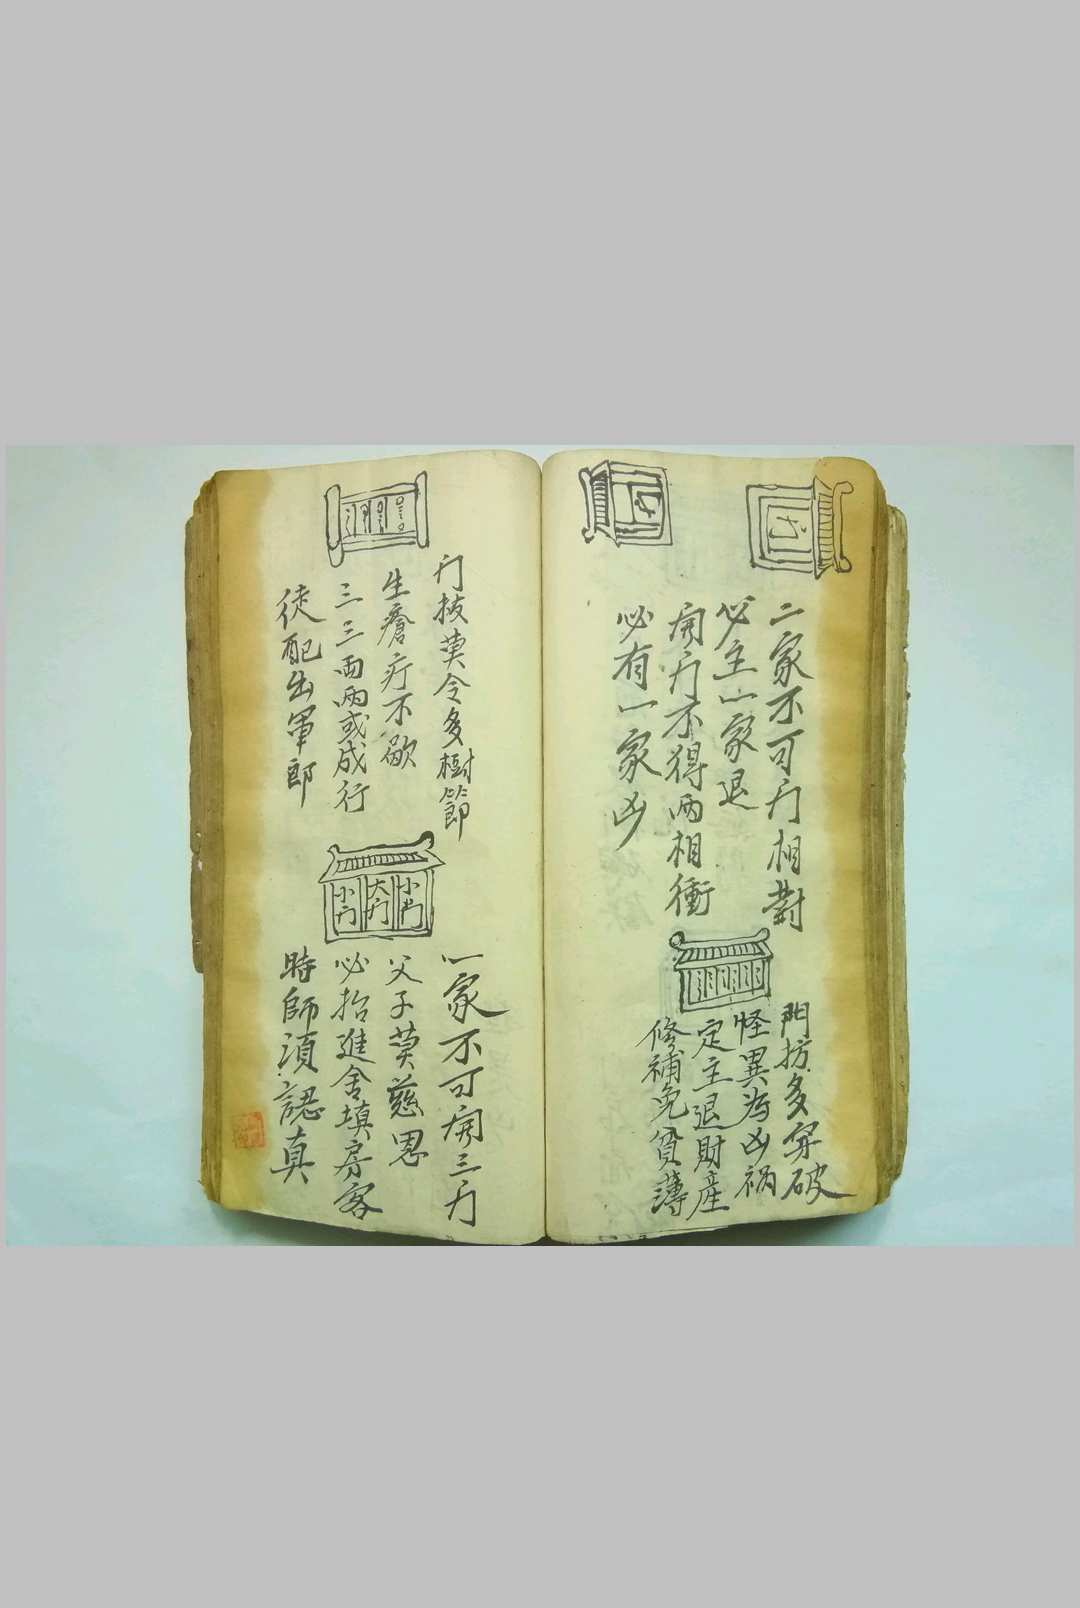 二家不可门相對
必主一家退
開门不得両相衝
必有一家凶
門坊多穿破
怪異為凶禍
定主退財産
修補免貧薄
门板莫令多樹節
生瘡疔不歇
三三両両或成行
徒配出軍郎
小门
大门
小门
一家不可開三门
父子莫慈恩
必招進舍填房客
時師須認真